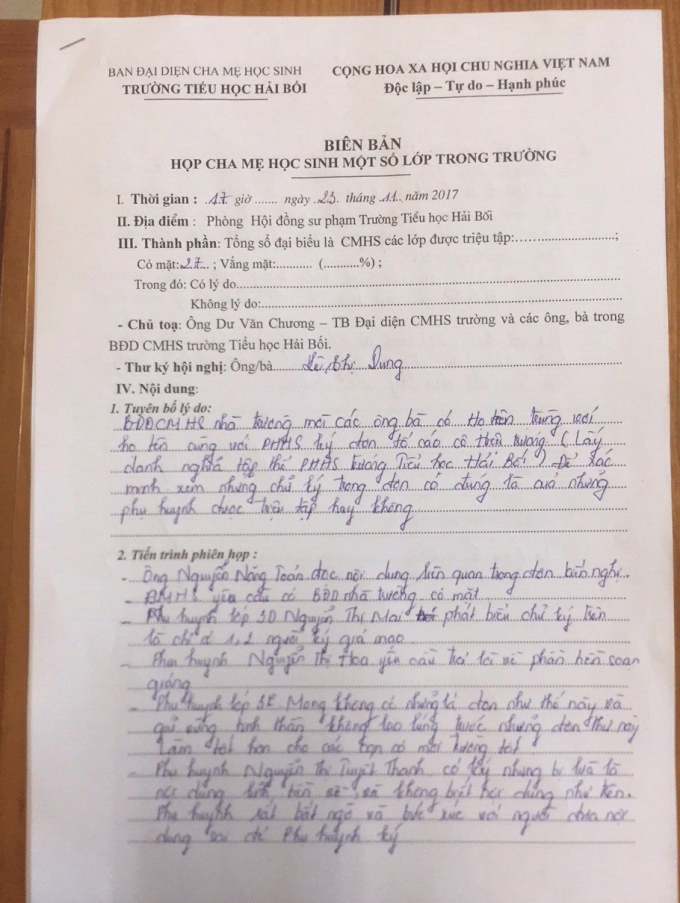 BAN ĐẠI DIỆN CHA MẸ HỌC SINH
TRƯỜNG TIỂU HỌC HẢI BỐI
CỘNG HOA XA HỘI CHU NGHIA VIỆT NAM
Độc lập – Tự do – Hạnh phúc
BIÊN BẢN
HỌP CHA MẸ HỌC SINH MỘT SỐ LỚP TRONG TRƯỜNG
I. Thời gian : 17 giờ ....... ngày 23 tháng 11 năm 2017
II. Địa điểm : Phòng Hội đồng sư phạm Trường Tiểu học Hải Bối
III. Thành phần: Tổng số đại biểu là CMHS các lớp được triệu tập:........................;
Có mặt: 27 ; Vắng mặt:........... (...........%) ;
Trong đó: Có lý do.................................................
Không lý do:.................................................
- Chủ toạ: Ông Dư Văn Chương – TB Đại diện CMHS trường và các ông, bà trong
BĐD CMHS trường Tiểu học Hải Bối.
- Thư ký hội nghị: Ông/bà Lê Thị Dung
IV. Nội dung:
1. Tuyên bố lý do:
BĐDCMHS nhà trường mời các ông bà có Họ tên trùng với
họ tên cùng với PHHS ký đơn tố cáo cô hiệu trưởng (Lấy
danh nghĩa tập thể PHHS trường Tiểu học Hải Bối) Để xác
minh xem những chữ ký trong đơn có đúng là của những
phụ huynh được triệu tập hay không
2. Tiến trình phiên họp :
- Ông Nguyễn Năng Toán đọc nội dung liên quan trong đơn kiến nghị.
- yêu cầu có BĐD nhà trường có mặt
- Phụ huynh lớp 3D Nguyễn Thị Mai phát biểu chữ ký trên
là chỉ 1, 2 người ký giả mạo
- Phụ huynh Nguyễn Thị Hoa yêu cầu trả lời về phần biên soạn
giảng
- Phụ huynh lớp 3E Mong không có những lá đơn như thế này và
giữ vững tinh thần không lao lúng trước những đơn thư này
Làm tốt hơn cho các con có môi trường tốt
- Phụ huynh Nguyễn Thị Tuyết Thanh có ký nhưng bị lừa là
nội dung và không biết nội dung như trên.
Phụ huynh rất bất ngờ và bức xúc với người đưa nội
dung sai để Phụ huynh ký